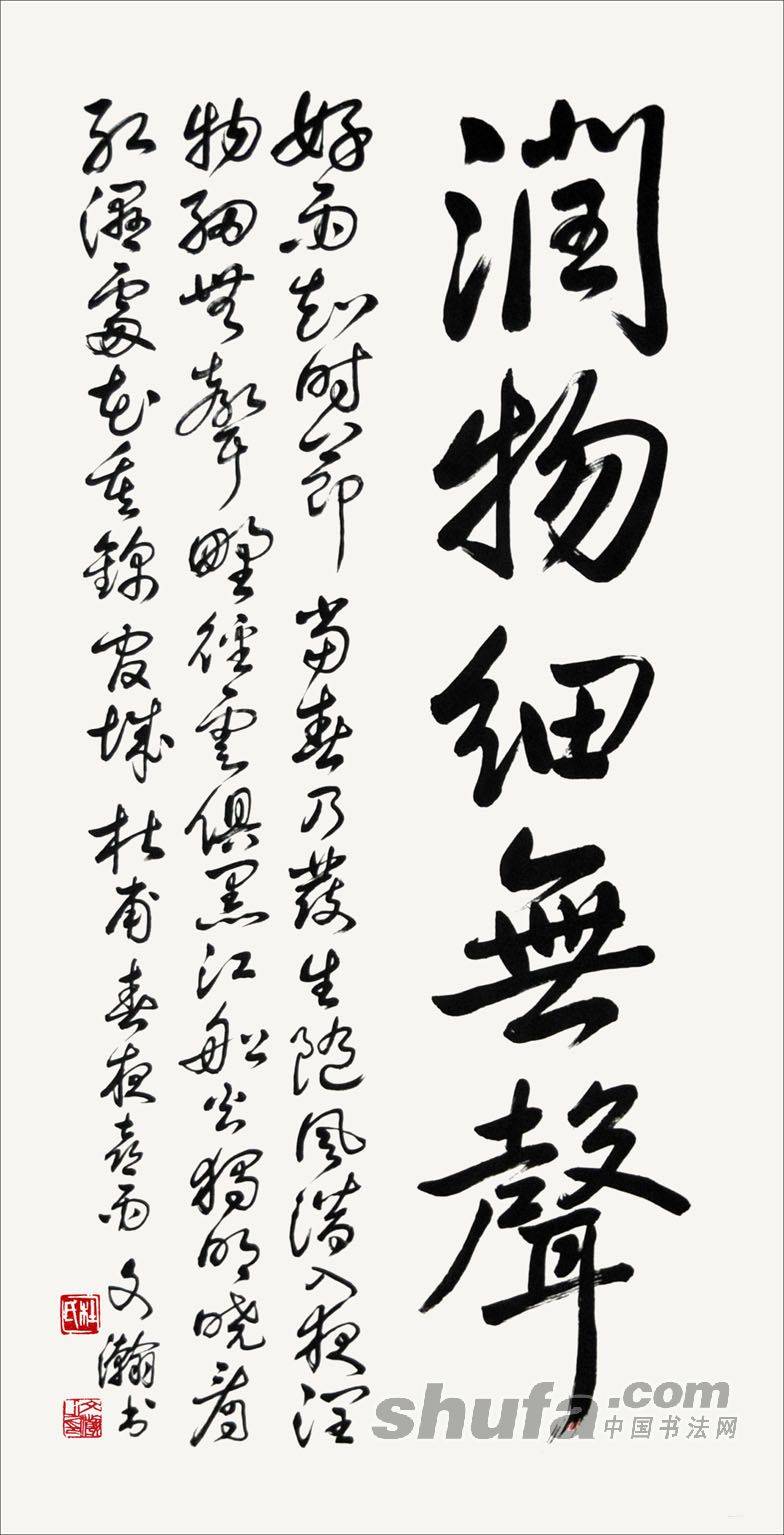 润物细無聲
好雨知时節當春乃發生随風潛入夜润
物細無聲野徑雲俱黑江船火獨明晓看
紅濕處花重錦官城 杜甫春夜喜雨 文瀚书
杜氏
shufa.com
中国书法网